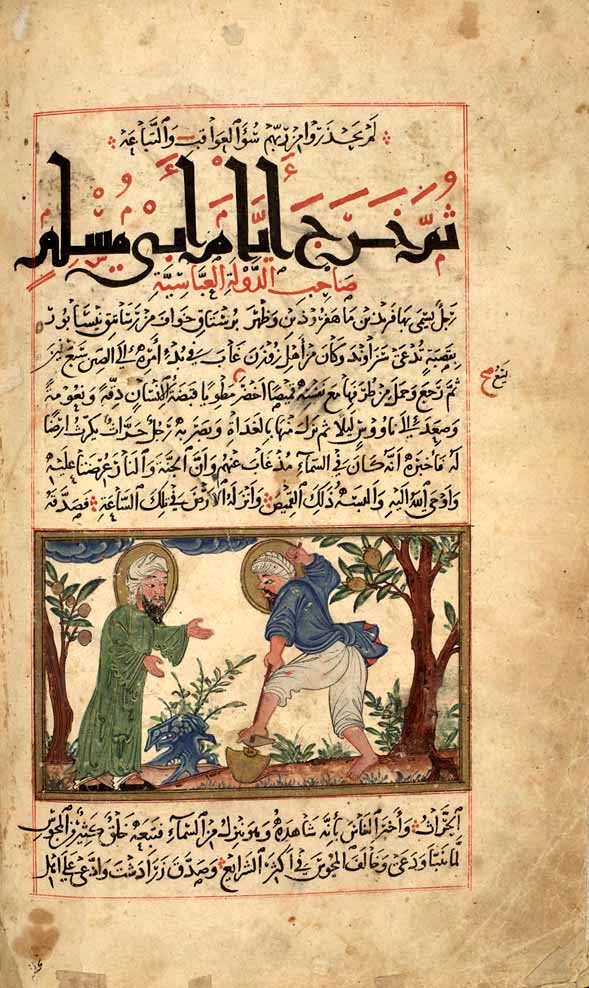 لم يحذروا من ربهم سوء العواقب والتباعة
ثم خرج أيام أبي مسلم
صاحب الدولة العباسية
رجل يسمى بهافريذ بن ماه فروذين وظهر برستاق خواف من رساتيق نيسابور
بقصبة تدعى سراوند وكان من أهل زوزن غاب في بدء أمره إلى الصين سبع سنين
ثم رجع وحمل من طرفها مع نفسه قميصا أخضر مطويا قبضة الإنسان دقة ونعومة
وصعد إلى ناووس ليلا ثم نزل منها بالغداة وبصر به رجل حراث يكرث ارضا
له فاخبره انه كان في السماء مذ غاب عنهم وان الجنة والنار عرضتا عليه
واوحى الله اليه والبسه ذلك القميص وانزله الارض في تلك الساعة فصدقه
الحراث واخبر الناس بانه شاهده وهو ينزل من السماء فتبعه خلق كثير من المجوس
لما تنبأ ودعى وخالف المجوس في اكثر الشرايع وصدق زرادشت وادعى على اهل